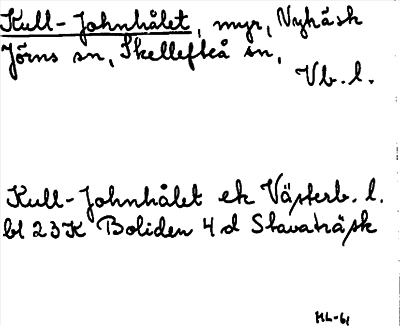 Kull-Johnhålet, myr, Nyhåsk
Jörns sn, Skellefteå sn,
Vb. l.
Kull-Johnhålet ek Västerb. l.
bl 23K Boliden 4 d Slavaträsk
ML-61